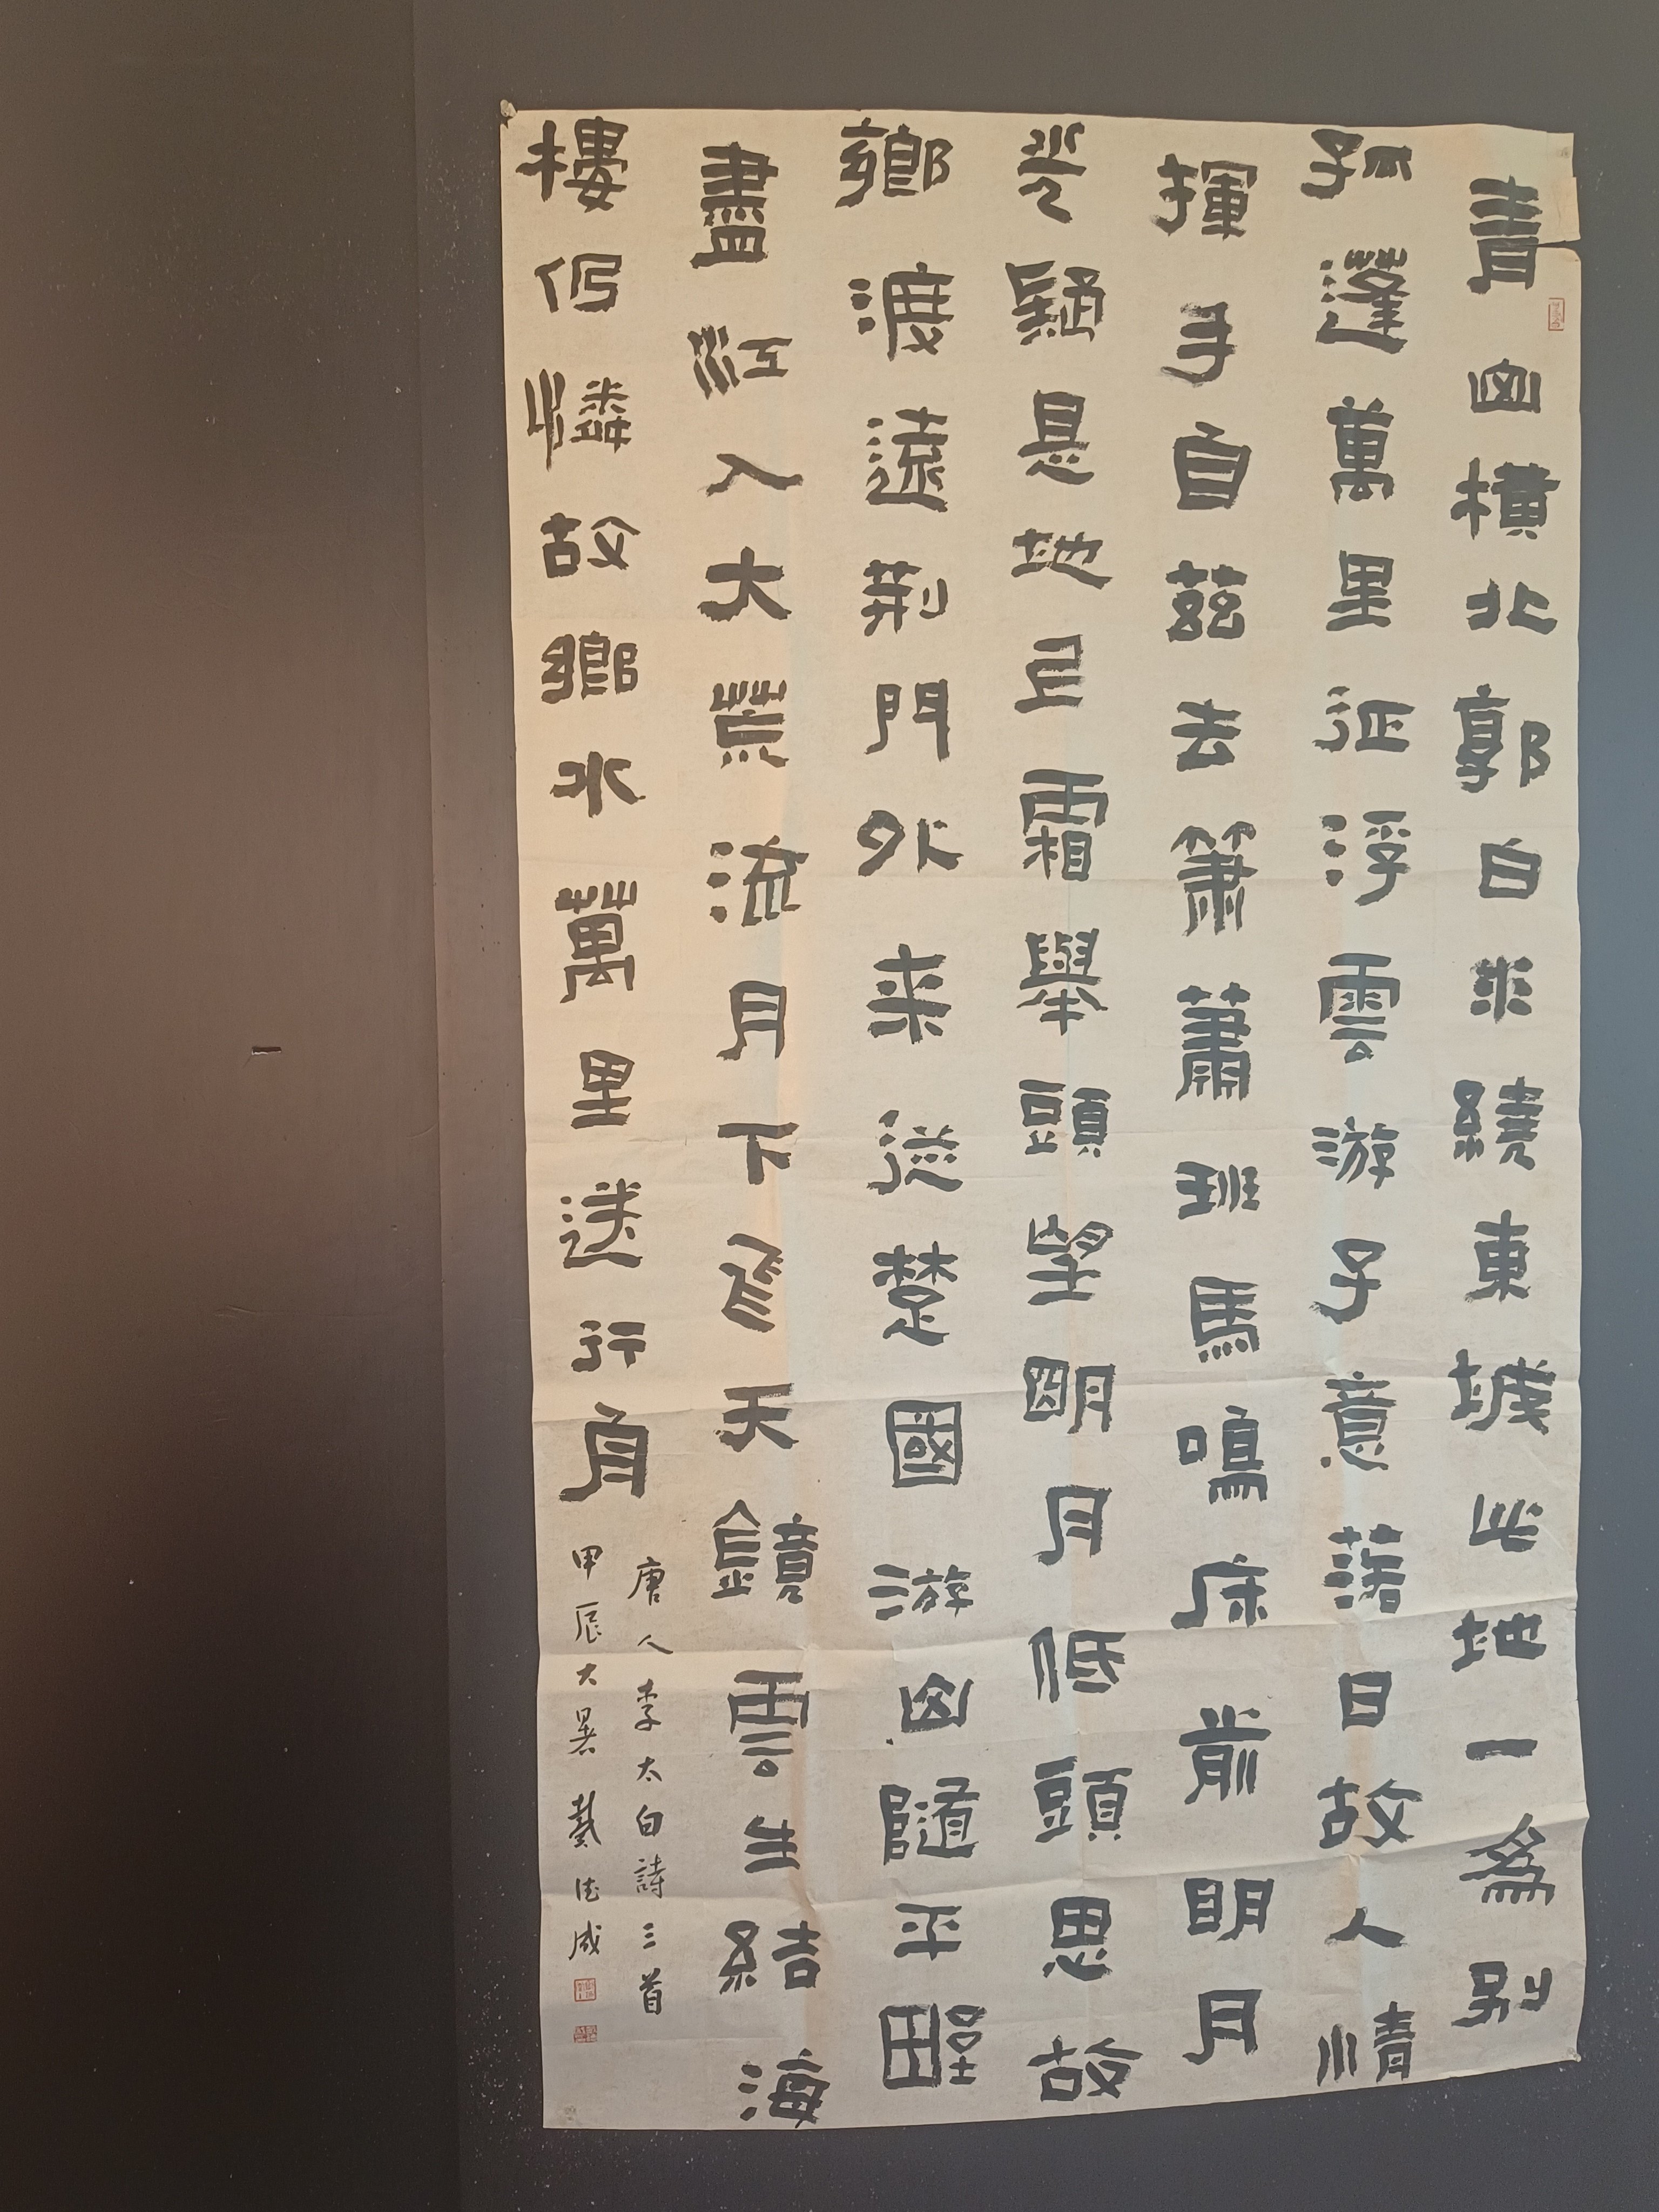 青山橫北郭白水繞東城此地一為別
孤蓬萬里征浮雲游子意落日故人情
揮手自茲去簫蕭班馬鳴床前明月
光疑是地上霜舉頭望明月低頭思故
鄉渡遠荊門外来從楚國游山隨平野
盡江入大荒流月下飛天鏡雲生結海
樓仍憐故鄉水萬里送行舟
唐人李太白詩三首
甲辰大暑戴